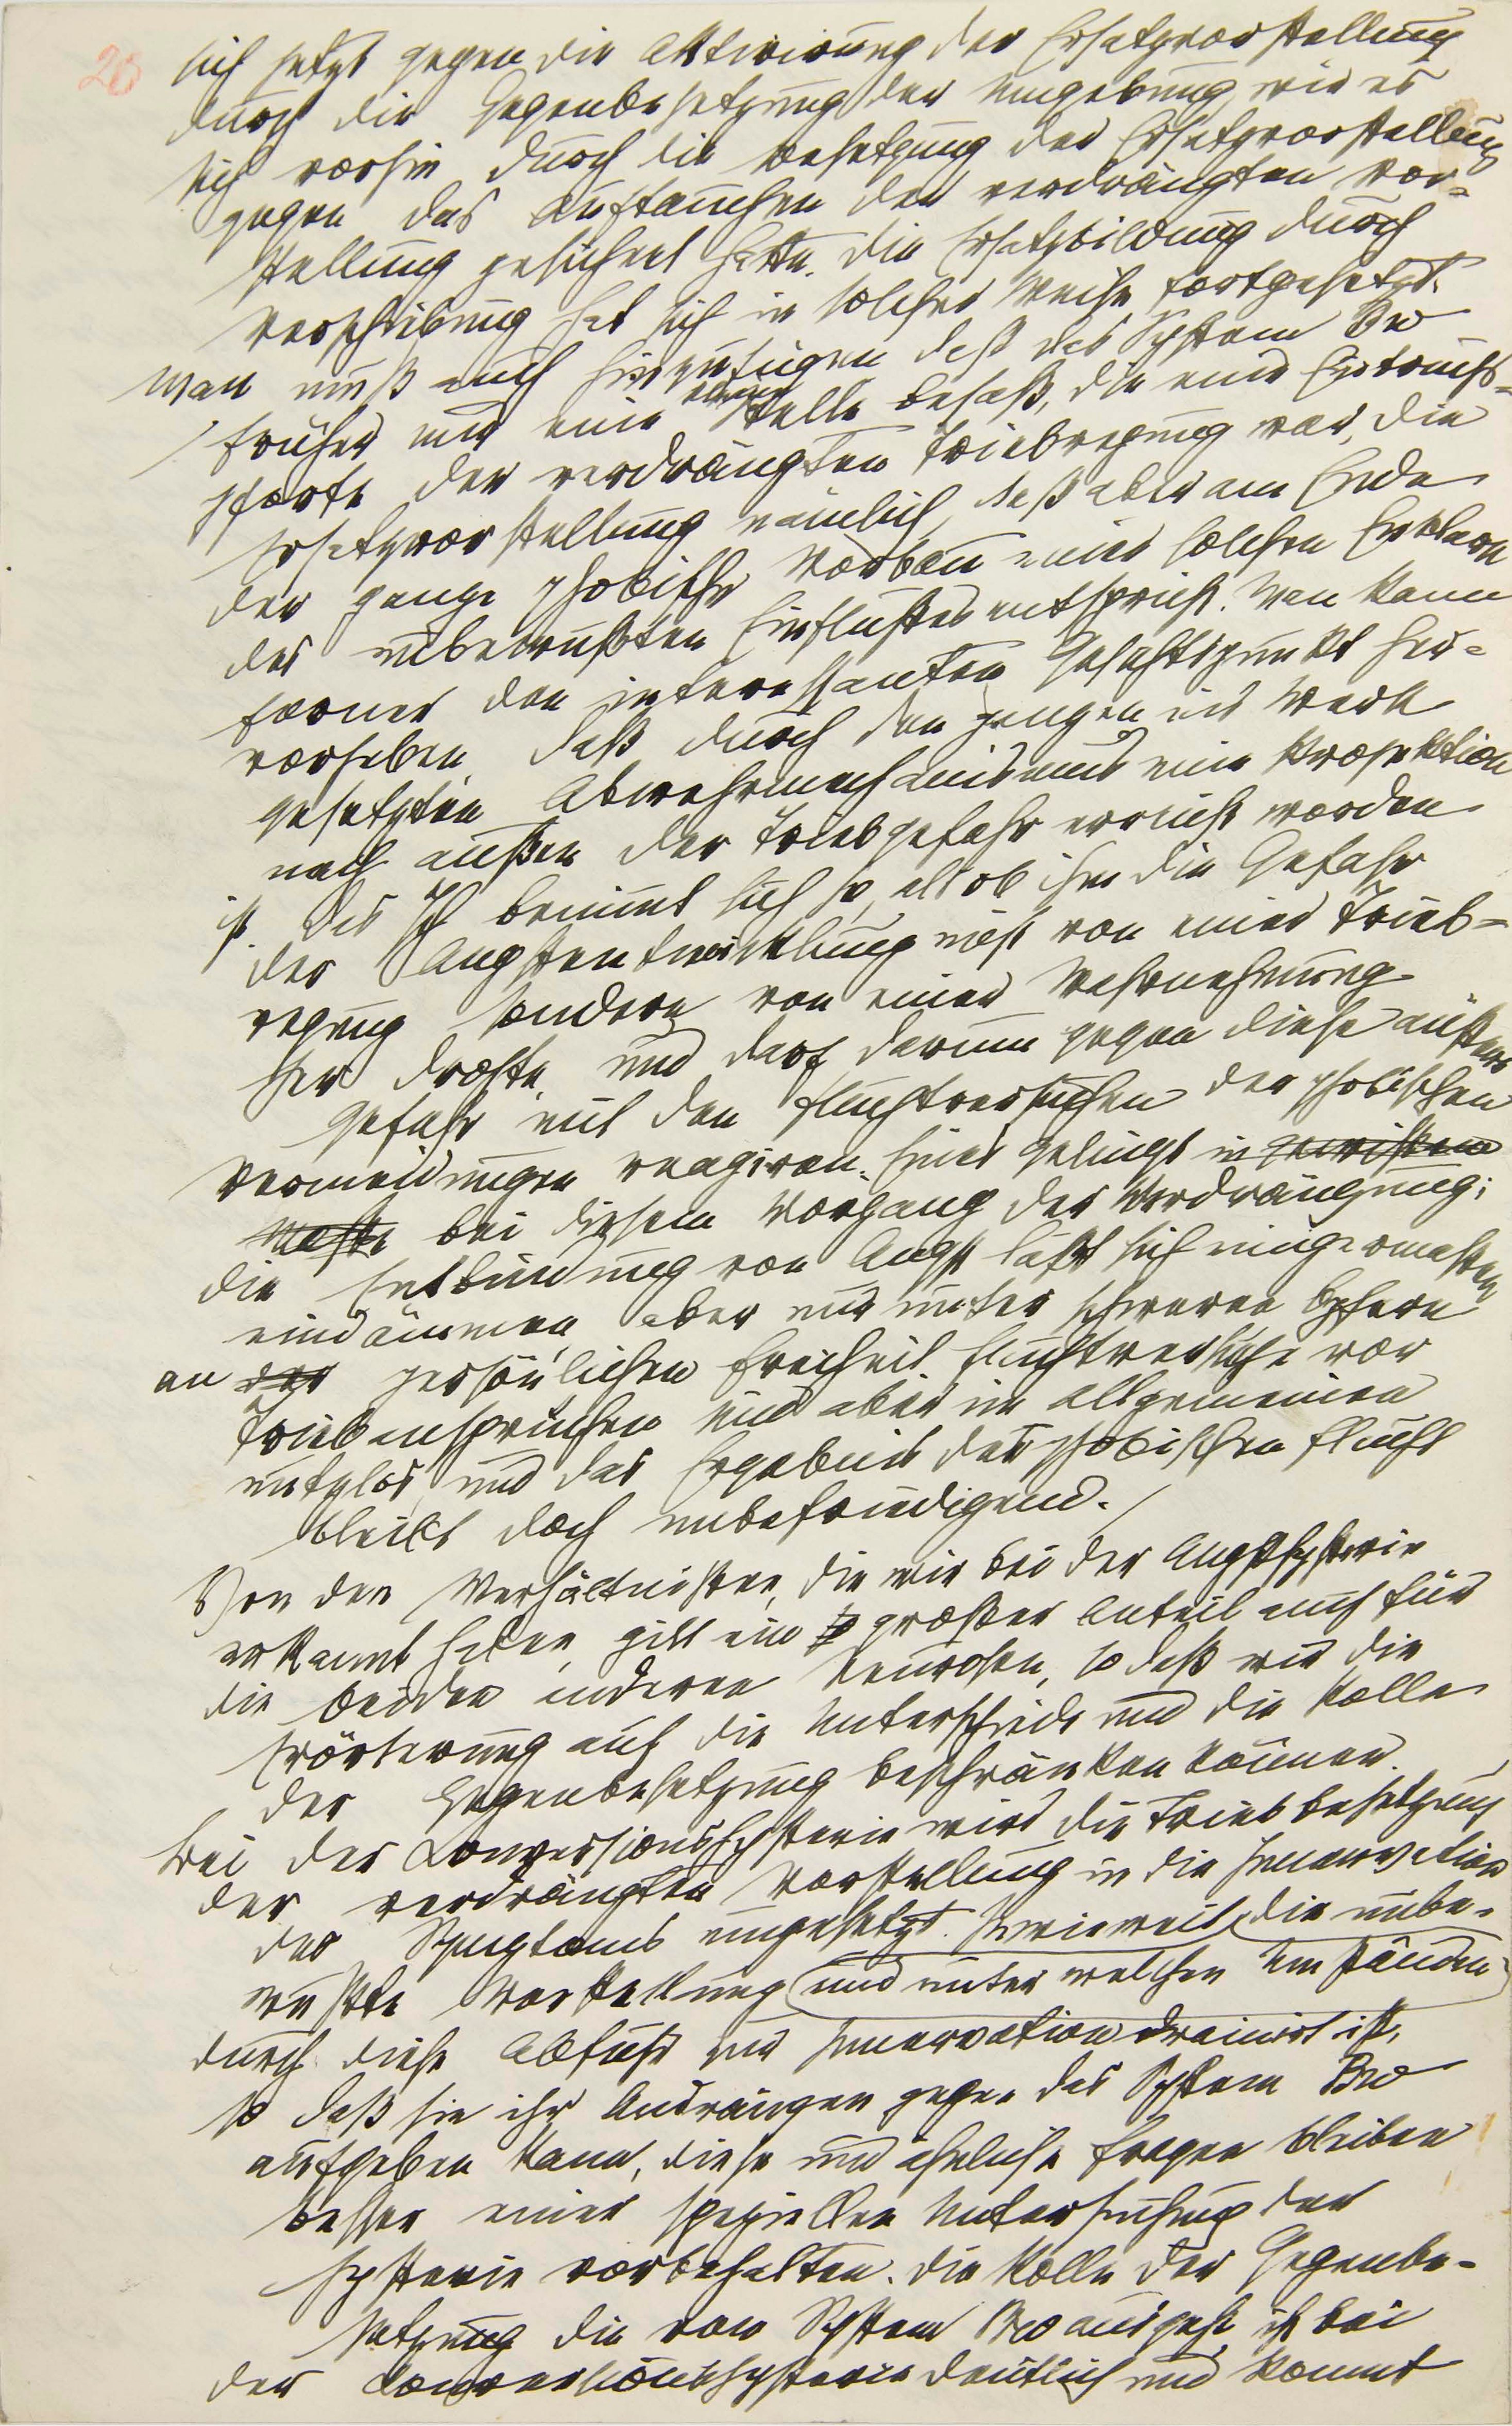 26
sich jetzt gegen die Aktivirung der Ersatzvorstellung
durch die Gegenbesetzung der Umgebung, wie es
sich vorhin durch die Besetzung der Ersatzvorstellung
gegen das Auftauchen der verdrängten Vor-
stellung gesichert hatte. Die Ersatzbildung durch
Verschiebung hat sich in solcher Weise fortgesetzt.
Man muß auch hinzufügen, daß das System Bw
früher nur eine kleine Stelle besaß, die eine Einbruchs-
pforte der verdrängten Triebregung war, die
Ersatzvorstellung nämlich, daß aber am Ende
der ganze phobische Vorbau einer solchen Enklave
des unbewußten Einflußes entspricht. Man kann
ferner den interessanten Gesichtspunkt her-
vorheben, daß durch den ganzen ins Werk
gesetzten Abwehrmechanismus eine Projektion
nach außen der Triebgefahr erreicht worden
ist. Das Ich benimmt sich so, als ob ihm die Gefahr
der Angstentwicklung nicht von einer Trieb-
regung sondern von einer Wahrnehmung
her drohte, und darf darum gegen diese äußere
Gefahr mit den Fluchtversuchen der phobischen
Vermeidungen reagiren. Eines gelingt in gewissem
Maße bei diesem Vorgang der Verdrängung;
die Entbindung von Angst läßt sich einigermaßen
eindämmen, aber nur unter schweren Opfern
an der persönlichen Freiheit. Fluchtversuche vor
Triebansprüchen sind aber im allgemeinen
nutzlos, und das Ergebnis der phobischen Flucht
bleibt doch unbefriedigend. /
Von den Verhältnißen, die wir bei der Angsthysterie
erkannt haben, gilt ein so großer Anteil auch für
die beiden anderen Neurosen, so daß wir die
Erörterung auf die Unterschiede und die Rolle
der Gegenbesetzung beschränken können.
Bei der Conversionshysterie wird die Triebbesetzung
der verdrängten Vorstellung in die Innervation
des Symptoms umgesetzt. Inwieweit die unbe-
wußte Vorstellung und unter welchen Umständen
durch diese Abfuhr zur Innervation drainirt ist,
so daß sie ihr Andrängen gegen das System Bw
aufgeben kann, diese und ähnliche Fragen bleiben
besser einer speziellen Untersuchung der
Hysterie vorbehalten. Die Rolle der Gegenbe-
setzung die vom System Bw ausgeht, ist bei
der Conversionshysterie deutlich und kommt